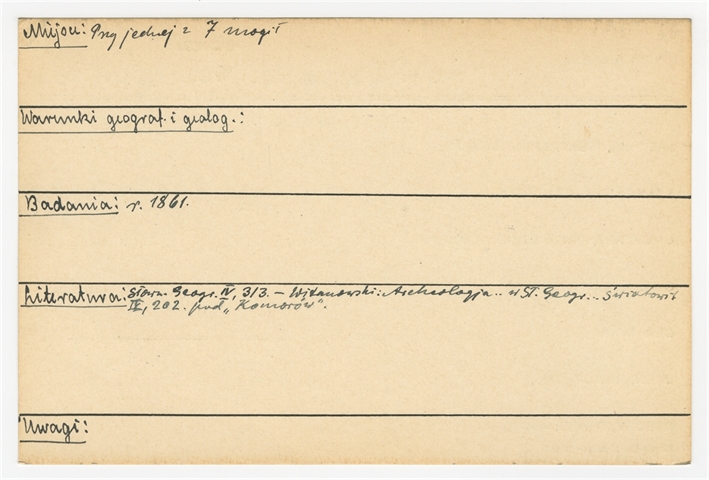 Miejsc: Przy jednej z 7 mogił
Warunki geograf. i geolog.:
Badania: r. 1861.
Literatura: Słown. Geogr. IV, 313. – Witanowski: Archeologja.. w Sł. Geogr... Światowit
IV, 202. pod „Komorów".
Uwagi: